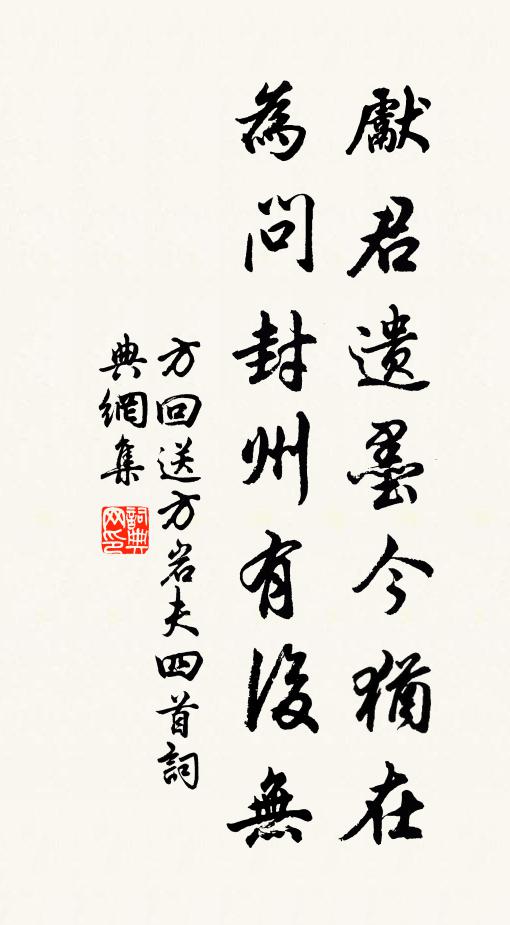 獻君遺墨今猶在
為問封州有後無
方回送方岩夫四首詞
典網集
詞典网印